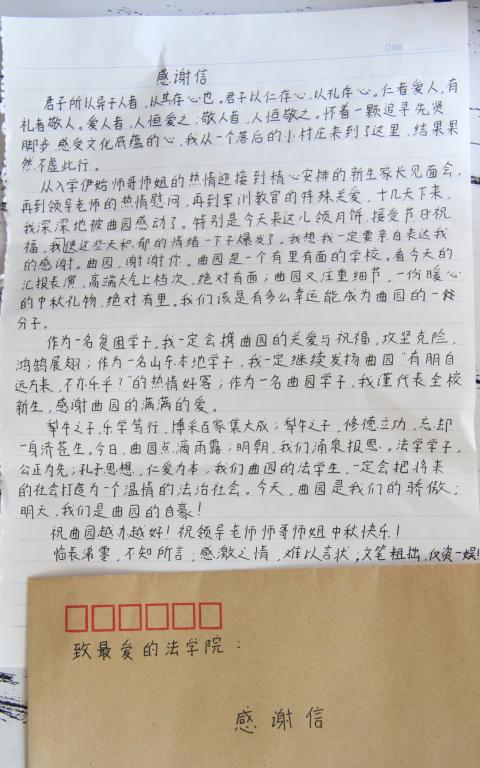 Date
感谢信
君子所以异于人者，以其存心也。君子以仁存心，以礼存心。仁者爱人，有
礼者敬人。爱人者，人恒爱之；敬人者，人恒敬之。怀着一颗追寻先贤
脚步，感受文化底蕴的心，我从一个落后的小村庄来到了这里，结果果
然不虚此行。
从入学伊始师哥师姐的热情迎接到精心安排的新生家长见面会，
再到领导老师的热情慰问，再到军训教官的特殊关爱，十几天下来，
我深深地被曲园感动了。特别是今天来这儿领月饼，接受节日祝
福，我这些天积郁的情绪一下子爆发了，我想我一定要亲自表达我
的感谢。曲园，谢谢你。曲园是一个有里有面的学校。看今天的
汇报表演，高端大气上档次，绝对有面；曲园又注重细节，一份暖心
的中秋礼物，绝对有里。我们该是有多么幸运能成为曲园的一
分子。
作为一名贫困学子，我一定会携曲园的关爱与祝福，攻坚克险，
鸿鹄展翅；作为一名山东本地学子，我一定继续发扬曲园“有朋自
远方来，不亦乐乎？”的热情好客；作为一名曲园学子，我谨代表全校
新生，感谢曲园的满满的爱。
犁牛之子，乐学笃行，博采百家集大成；犁牛之子，修德立功，忘却
一身济苍生。今日，曲园点滴雨露；明朝，我们涌泉报恩。法学学子，
公正为先；孔子思想，仁爱为本，我们曲园的法学生，一定会把将来
的社会打造为一个温情的法治社会。今天，曲园是我们的骄傲；
明天，我们是曲园的自豪！
祝曲园越办越好！祝领导老师师哥师姐中秋快乐！
临表涕零，不知所言；感激之情，难以言状；文笔粗拙，仅资一娱！
致最爱的法学院：
感谢信